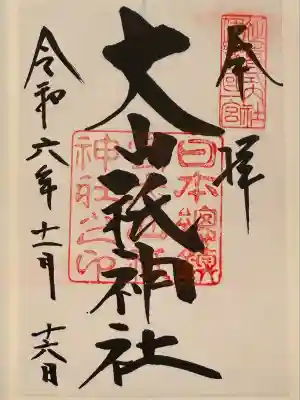 奉拝
大山祇神社
令和六年十一月十六日
日本總鎮
神社之印